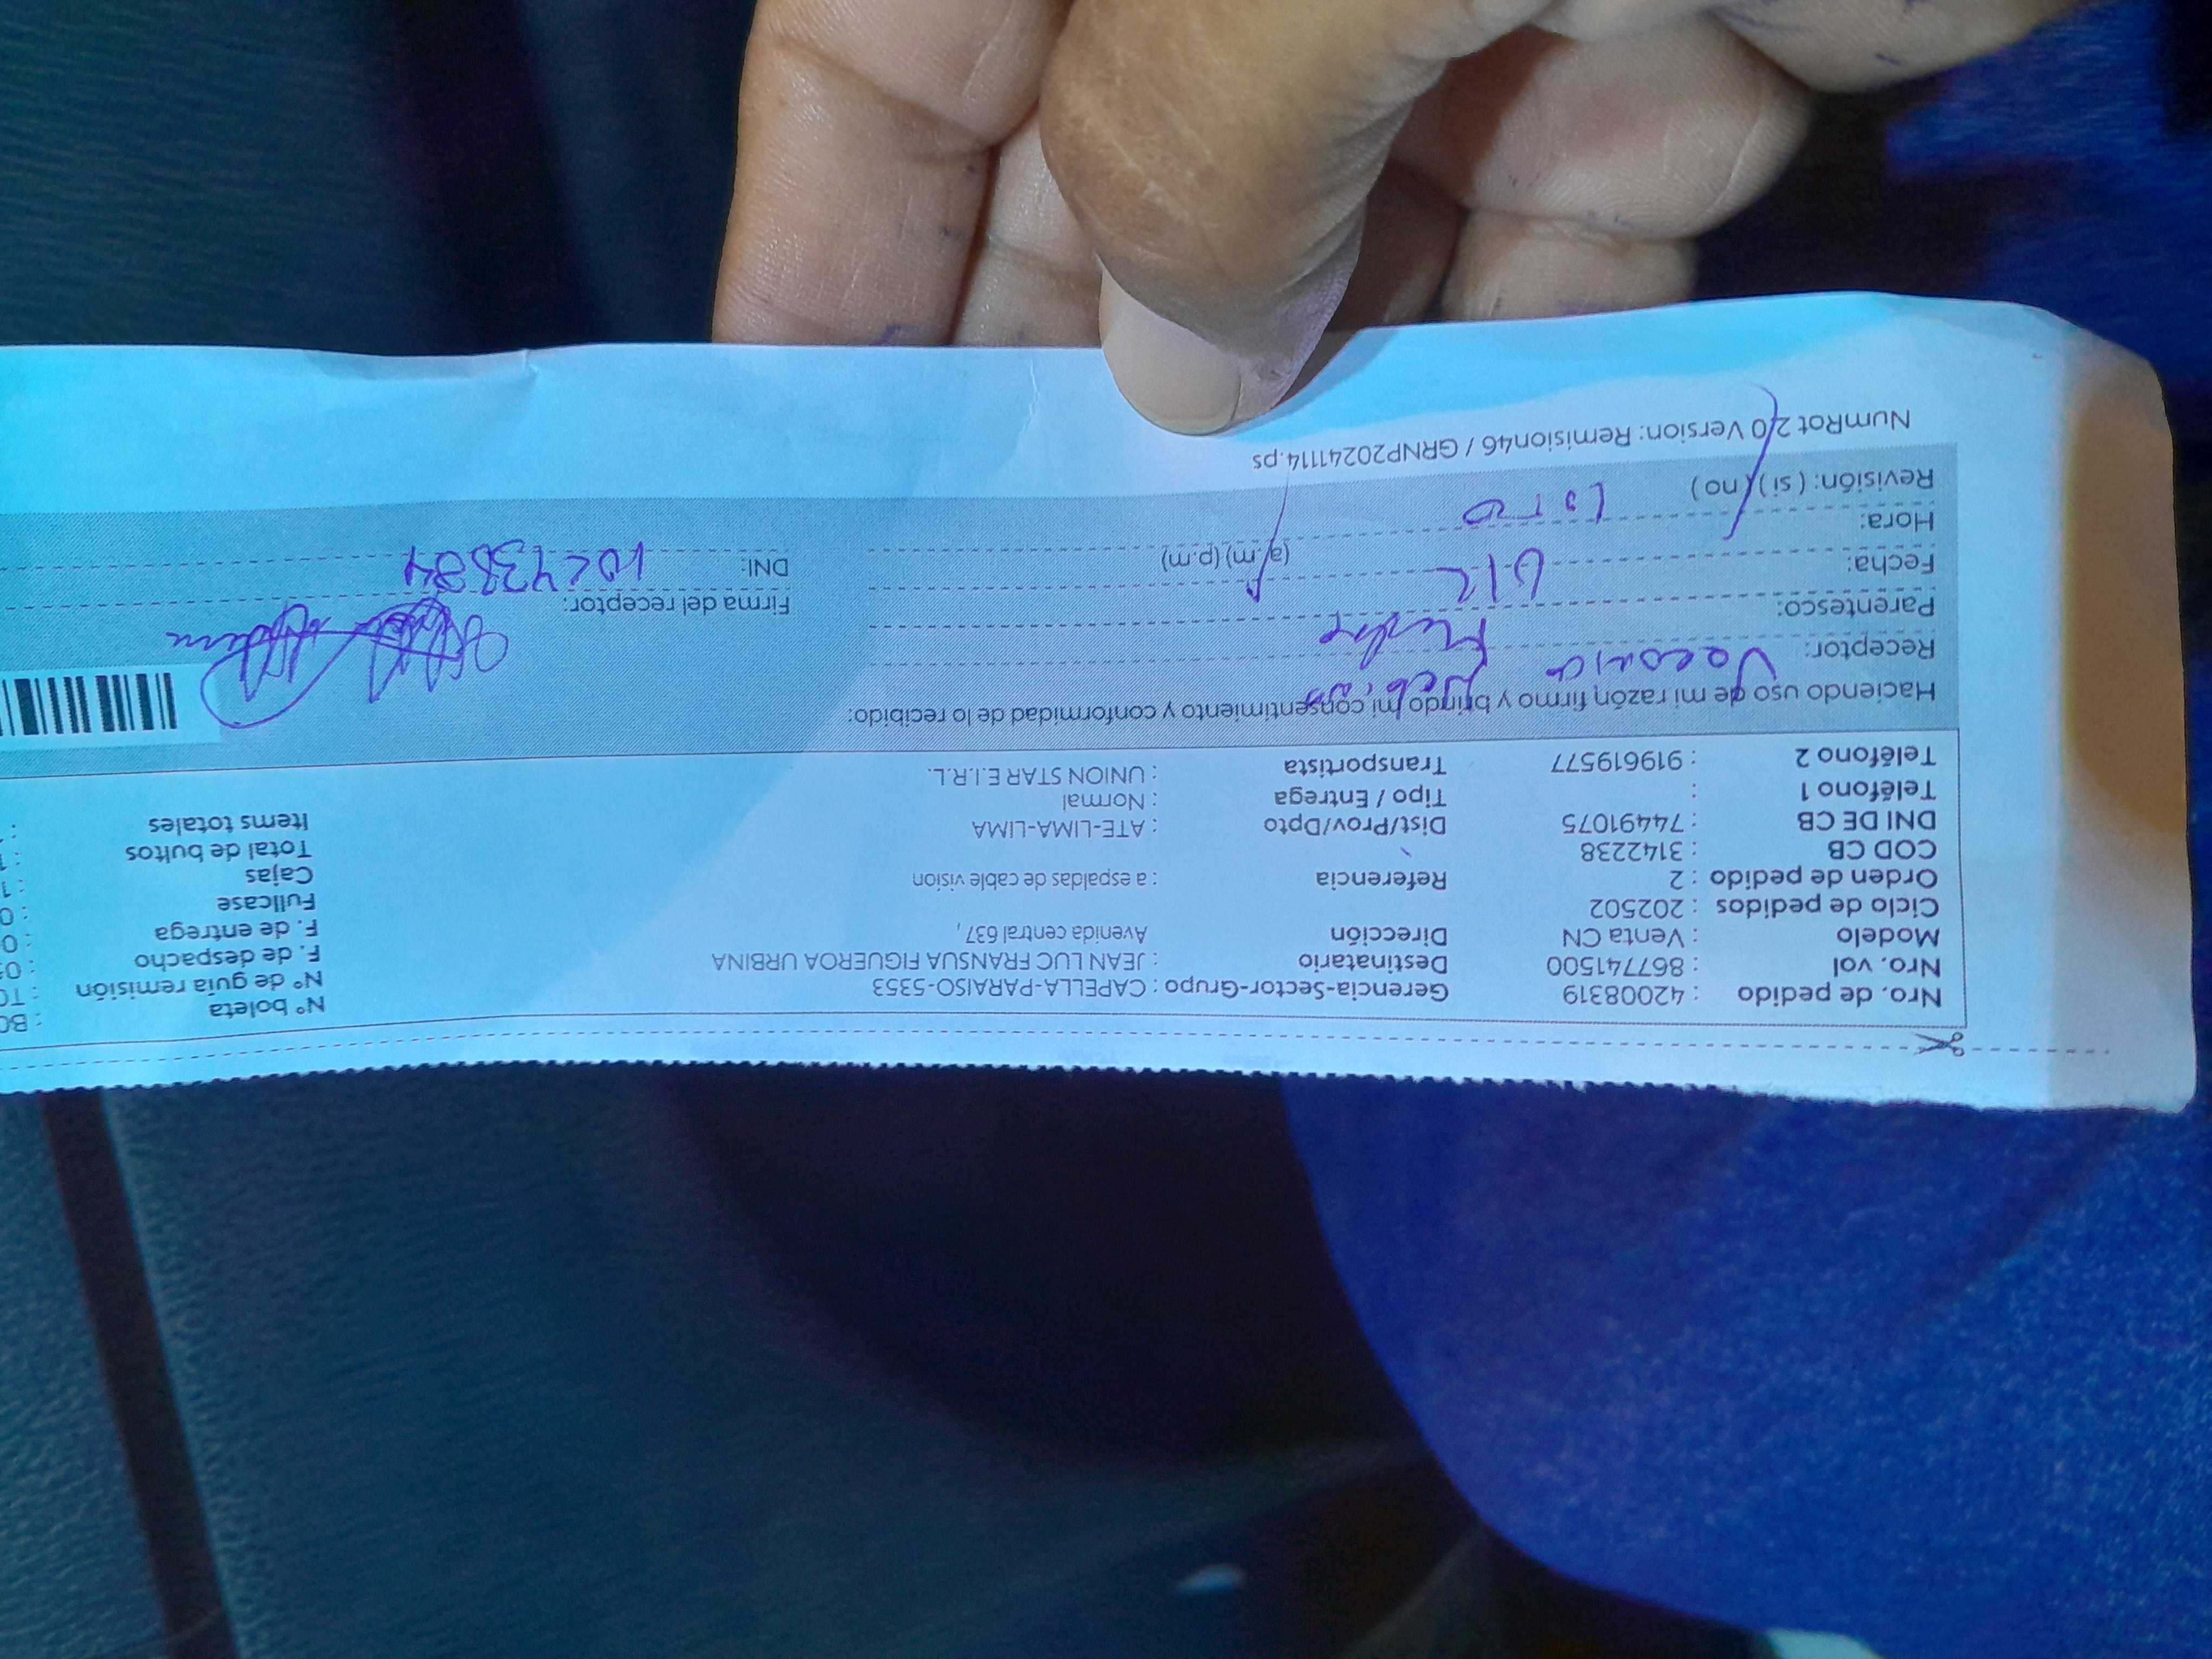 Nro. de pedido : 42008319 Gerencia-Sector-Grupo : CAPELLA-PARAISO-5353 N° boleta : BO
Nro. vol : 867741500 Destinatario : JEAN LUC FRANSUA FIGUEROA URBINA N° de guía remisión : T0
Modelo : Venta CN Dirección Avenida central 637, F. de despacho : 0
Ciclo de pedidos : 202502 F. de entrega : 0
Orden de pedido : 2 Referencia : a espaldas de cable vision Fullcase : 0
COD CB : 3142238 Cajas : 1
DNI DE CB : 74491075 Dist/Prov/Dpto : ATE-LIMA-LIMA Total de bultos : 1
Teléfono 1 : Tipo / Entrega : Normal Items totales :
Teléfono 2 : 919619577 Transportista : UNION STAR E.I.R.L.
Haciendo uso de mi razón, firmo y brindo mi consentimiento y conformidad de lo recibido:
Receptor:
Parentesco: Firma del receptor:
Fecha: (a.m) (p.m) DNI:
Hora:
Revisión: ( si ) ( no )
NumRot 2.0 Version: Remision46 / GRNP20241114.ps